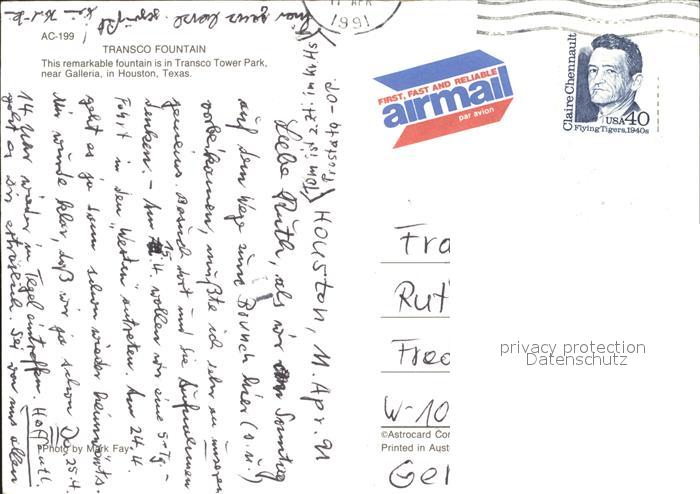 11 APR
1991
AC-199
TRANSCO FOUNTAIN
This remarkable fountain is in Transco Tower Park,
near Galleria, in Houston, Texas.
FIRST, FAST AND RELIABLE
airmail
par avion
Claire Chennault
USA 40
Flying Tigers, 1940s
Houston, 11. Apr. 91
Liebe Ruth, als wir Sonntag
auf dem Wege zum Brunch hier (o.u.)
vorbeikamen, mußte ich sehr an unseren
gemeins. Besuch dort und die Aufnahmen
denken. - Am 15.4. wollen wir eine 5-Tg.-
Fahrt in den "Westen" antreten. Am 24.4.
geht es ja dann schon wieder heimwärts.
Mir wurde klar, daß wir ja schon Do 25.4.
14 Uhr wieder in Tegel eintreffen. Hoffentl.
geht es Dir erträglich. Sei von uns allen
Fra
Rut
Fred
W-10
Ger
©Astrocard Com
Printed in Aust
Photo by Mark Fay
privacy protection
Datenschutz